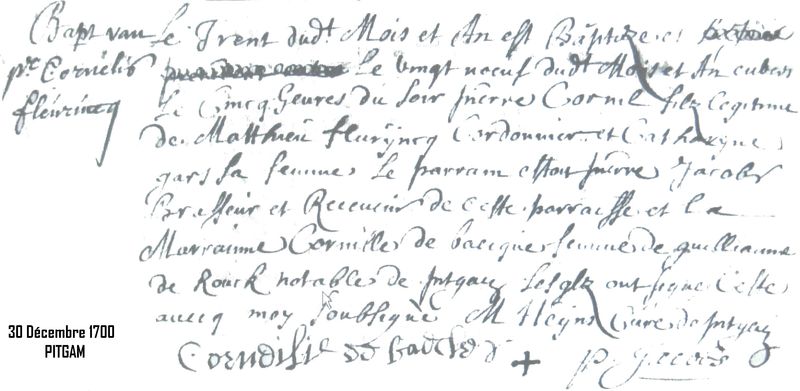 Bapt van
pr Cornelis
fleurincq
Le Trent dudt Mois et An est Baptize et
Le vingt noeuf dudt Mois et An environ
Le Cincq heures du soir pierre Cornil filz legitime
de Matthieu flurijncq Cordonnier et Catharyne
gars sa femme Le parram estoit pierre Jacobs
Brasseur et Receveur de ceste parraisse et la
Marrainne Cornille de bacque femme de guilliaume
de Rouck notable de pitgam Lesqlz ont signe Ceste
aucq moy Soubsigne M Heyns Cure de pitgam
30 Décembre 1700
PITGAM